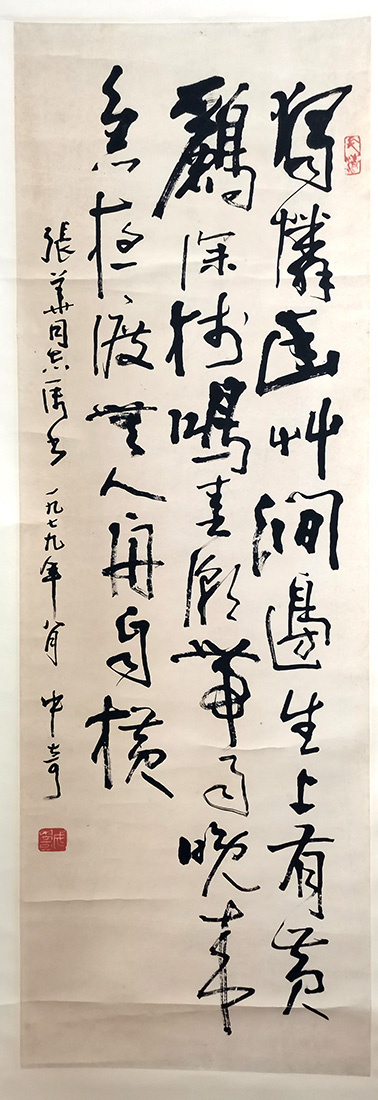 獨憐幽艸澗邊生上有黃
鸝深樹鳴春潮帶雨晚來
急野渡無人舟自橫
張華同志屬書 一九七九年八月 中奇